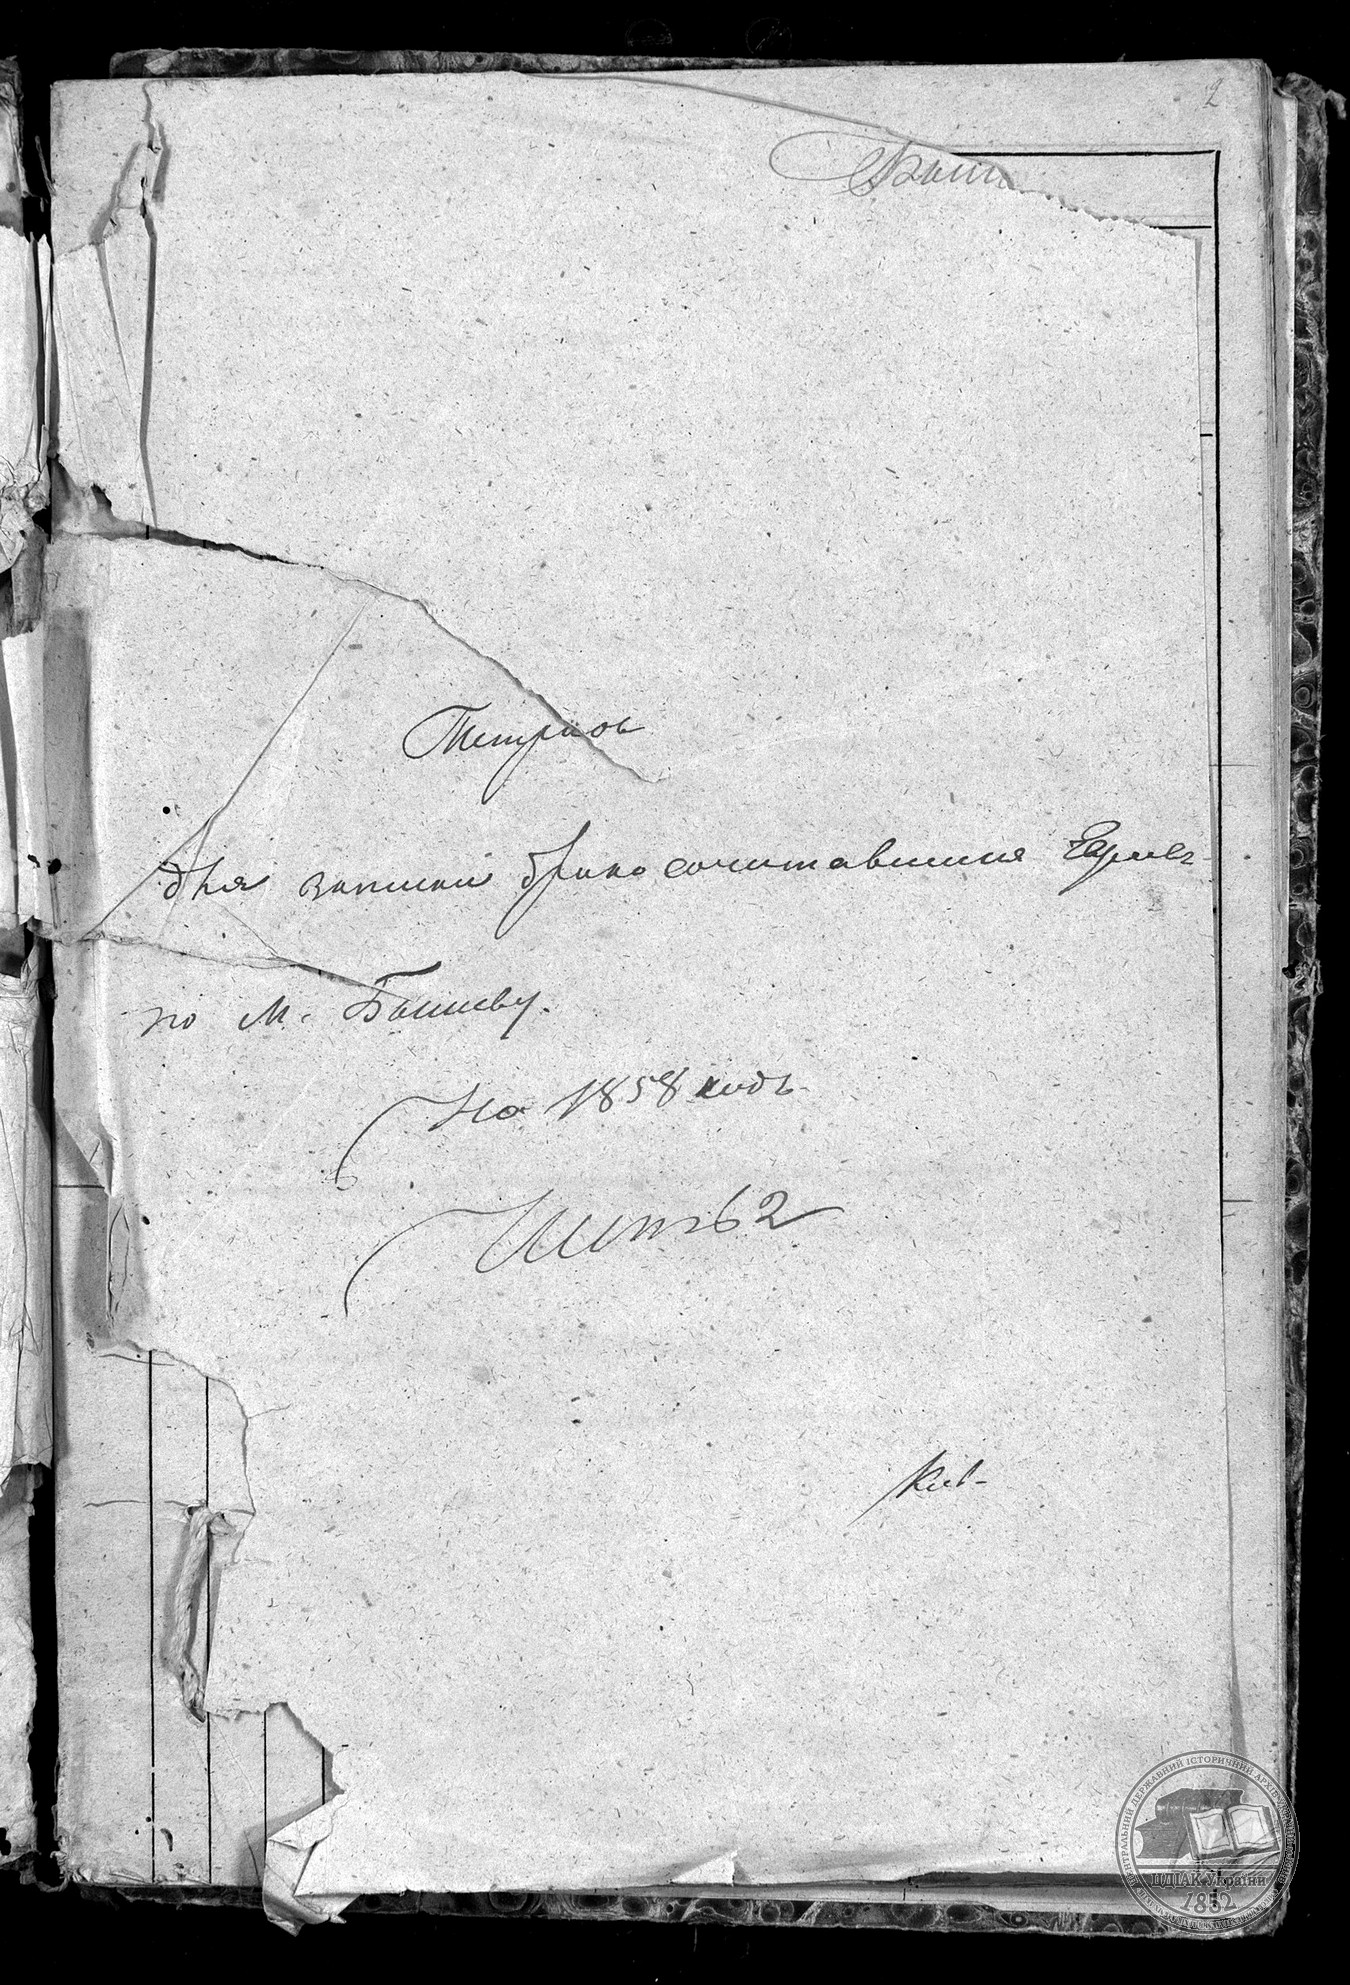 2
Тетрадь
для записки бракосочетавшихся Евреевъ
по м. Бышеву.
На 1858 годъ
ЦЕНТРАЛЬНИЙ ДЕРЖАВНИЙ ІСТОРИЧНИЙ АРХІВ УКРАЇНИ
ЦДІАК України
1852